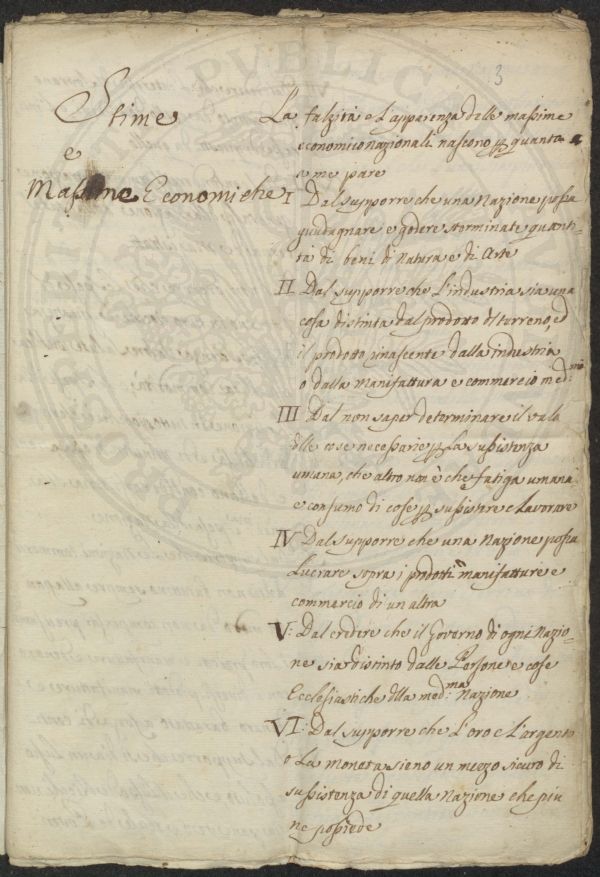 3
Stime
e
Massime Economiche
La falzità e l'apparenza delle massime
economiconazionali nascono p quanto
a me pare
I Dal supporre che una Nazione possa
guadagnare e godere sterminate quanti-
tà di beni di Natura e di Arte
II Dal supporre che l'industria sia una
cosa distinta dal prodotto d terreno, ed
il prodotto rinascente dalla industria
o dalla Manifattura e commercio med:mo
III Dal non saper determinare il valo
dlle cose necessarie p La sussistenza
umana, che altro non è che fatiga umana
e consumo di cose p sussistere e Lavorare
IV Dal supporre che una Nazione possa
Lucrare sopra i prodotti manifatture e
commercio di un altra
V: Dal credere che il Governo di ogni Nazio-
ne sia distinto dalle Persone e cose
Ecclesiastiche dlla med:ma Nazione
VI: Dal supporre che L'oro e L'argento
o La moneta sieno un mezzo sicuro di
sussistenza di quella Nazione che piu
ne possiede